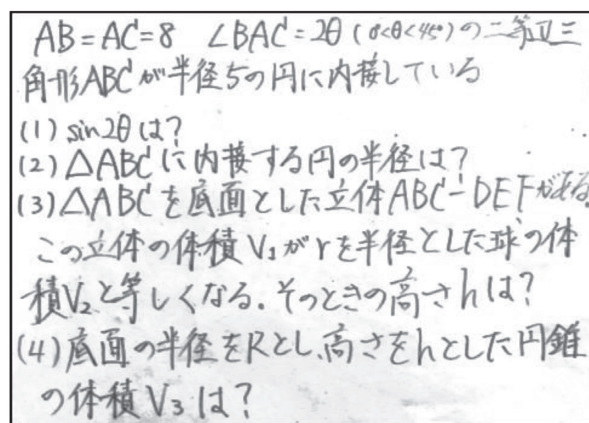 AB=AC=8 ∠BAC=2θ (0<θ<45°)の二等辺三
角形ABCが半径5の円に内接している
(1) sin2θは?
(2) △ABCに内接する円の半径は?
(3) △ABCを底面とした立体ABC-DEFがある
この立体の体積V₁がrを半径とした球の体
積V₂と等しくなる.そのときの高さhは?
(4) 底面の半径をRとし、高さをhとした円錐
の体積V₃は?